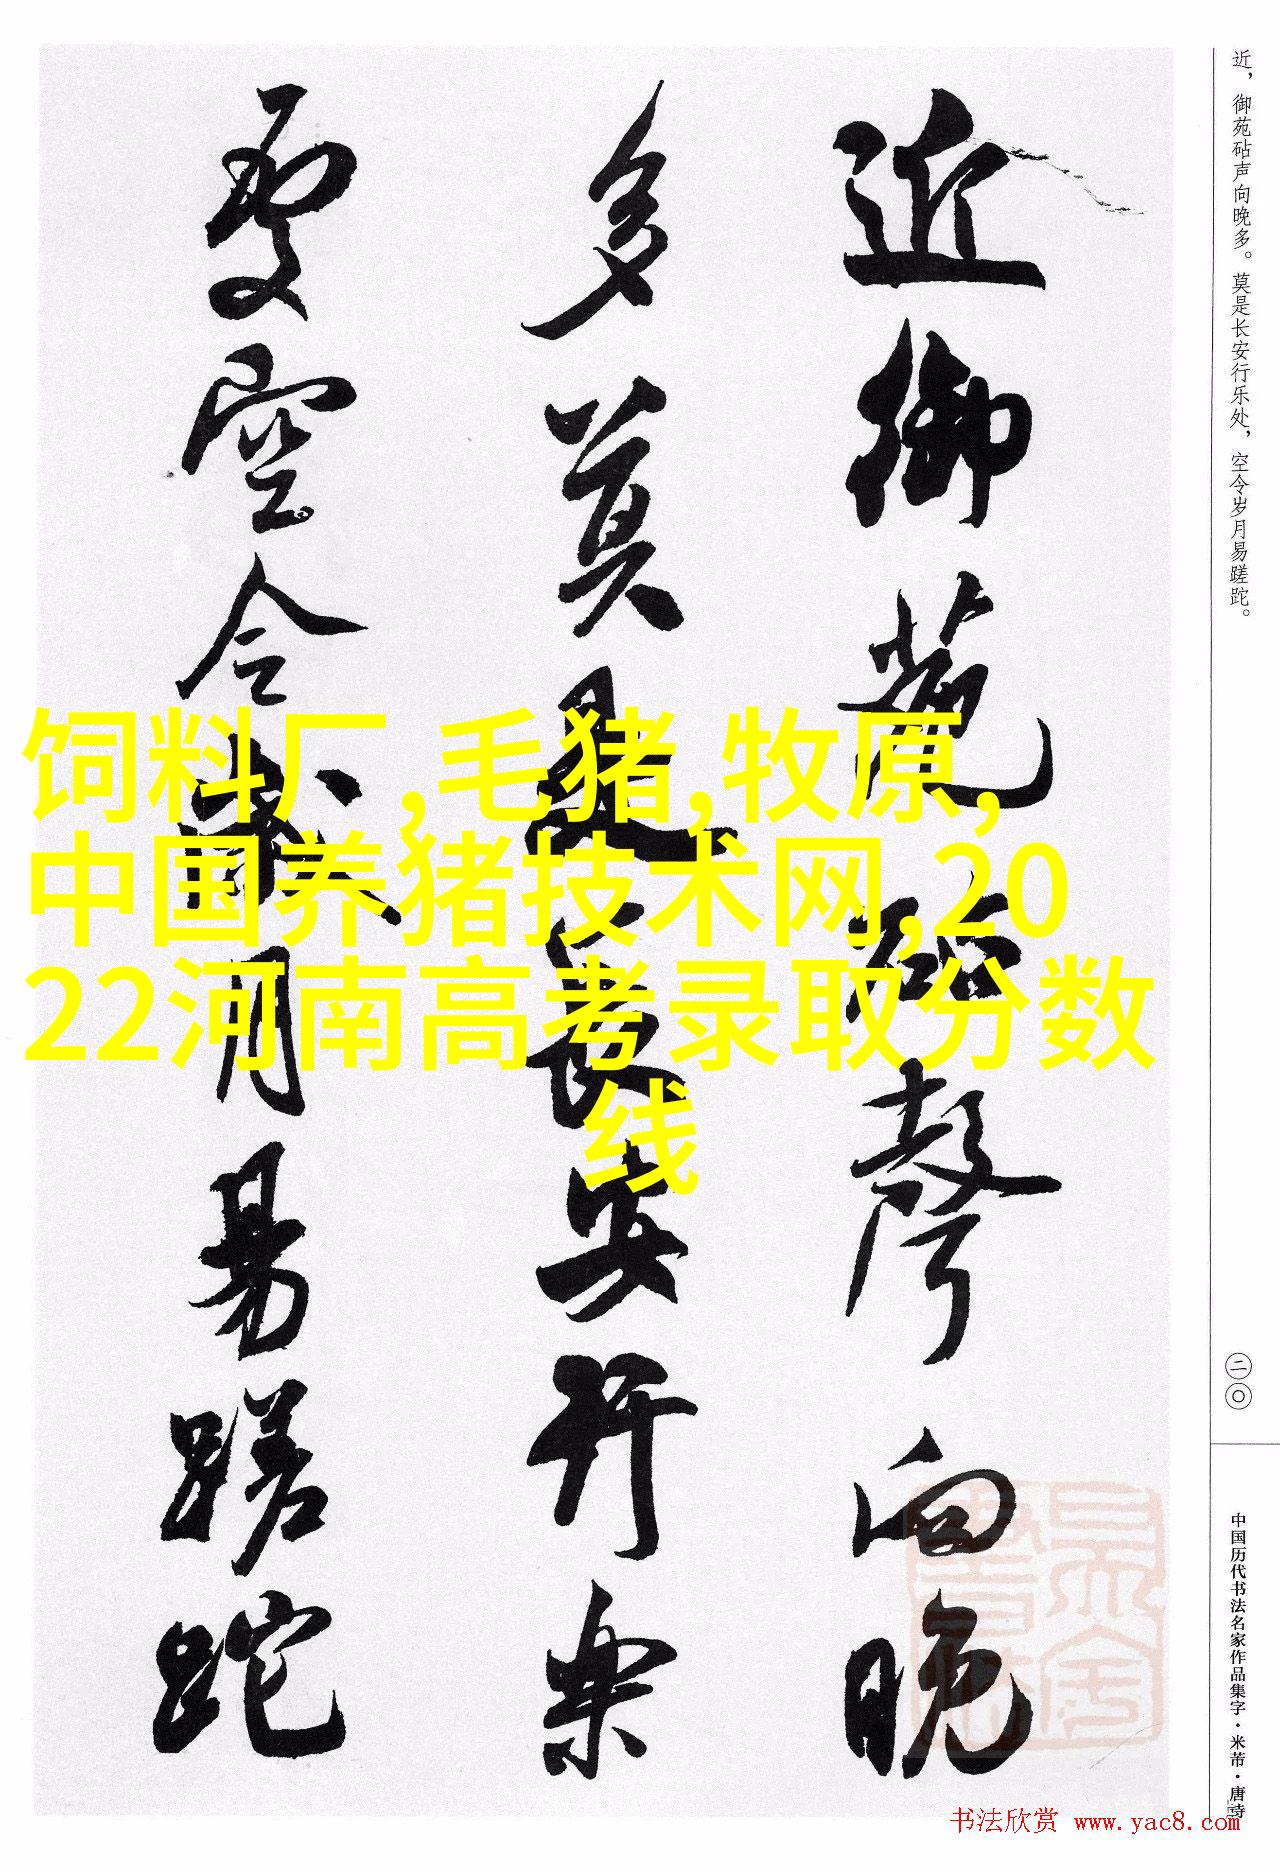 近御苑砧聲向晚
多莫是長安行樂
處空令歲月易蹉跎
近，御苑砧声向晚多。莫是长安行乐处，空令岁月易蹉跎。
二〇
中国历代书法名家作品集字·米芾·唐诗
饲料厂,毛猪,牧原,
中国养猪技术网,20
22河南高考录取分数
线
书法欣赏 www.yac8.com